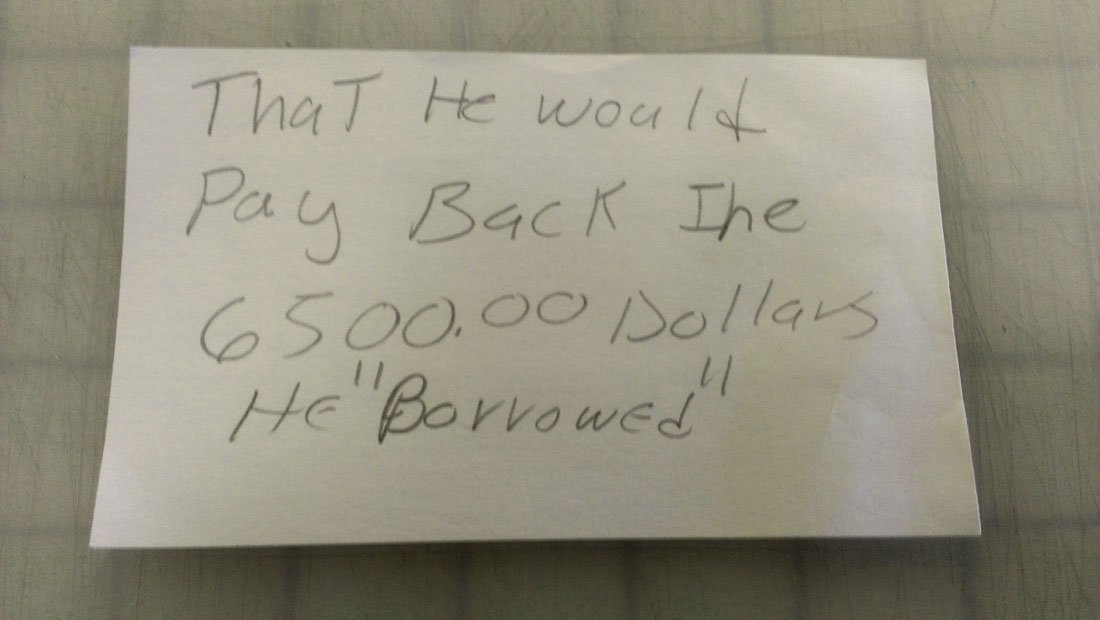 ThaT He would
Pay Back The
6500.00 Dollars
He "Borrowed"